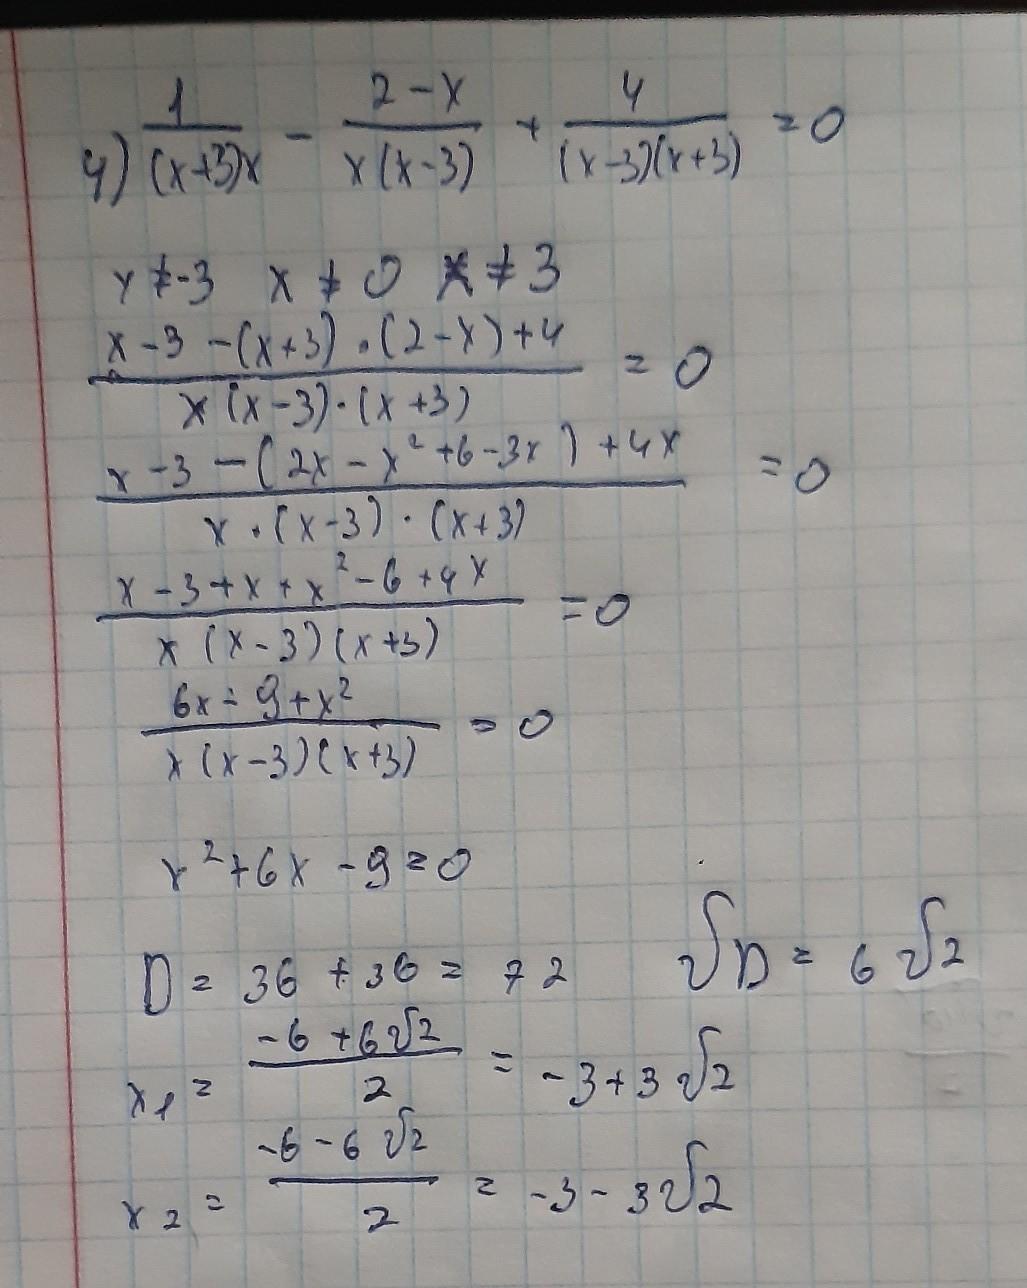 4) 1/((x+3)x) - (2-x)/(x(x-3)) + 4/((x-3)(x+3)) = 0
x≠-3 x≠0 x≠3
(x-3-(x+3)·(2-x)+4)/(x(x-3)·(x+3)) = 0
(x-3-(2x-x²+6-3x)+4x)/(x·(x-3)·(x+3)) = 0
(x-3+x+x²-6+4x)/(x(x-3)(x+3)) = 0
(6x-9+x²)/(x(x-3)(x+3)) = 0
x²+6x-9=0
D = 36+36 = 72 √D = 6√2
x₁ = (-6+6√2)/2 = -3+3√2
x₂ = (-6-6√2)/2 = -3-3√2